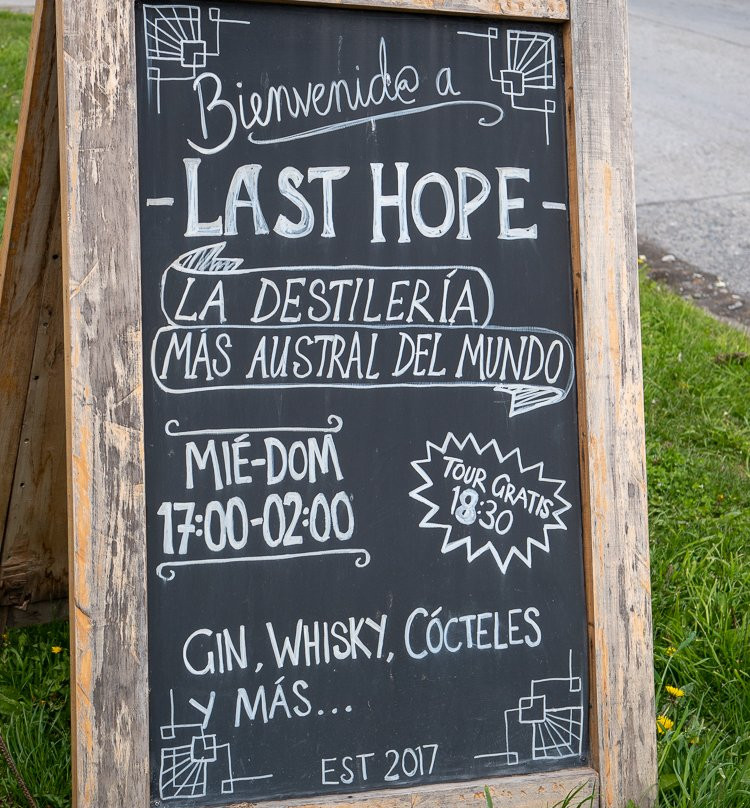 Bienvenid@ a
-LAST HOPE-
LA DESTILERÍA
MÁS AUSTRAL DEL MUNDO
MIÉ-DOM
17:00-02:00
TOUR GRATIS
18:30
GIN, WHISKY, CÓCTELES
Y MÁS...
EST 2017